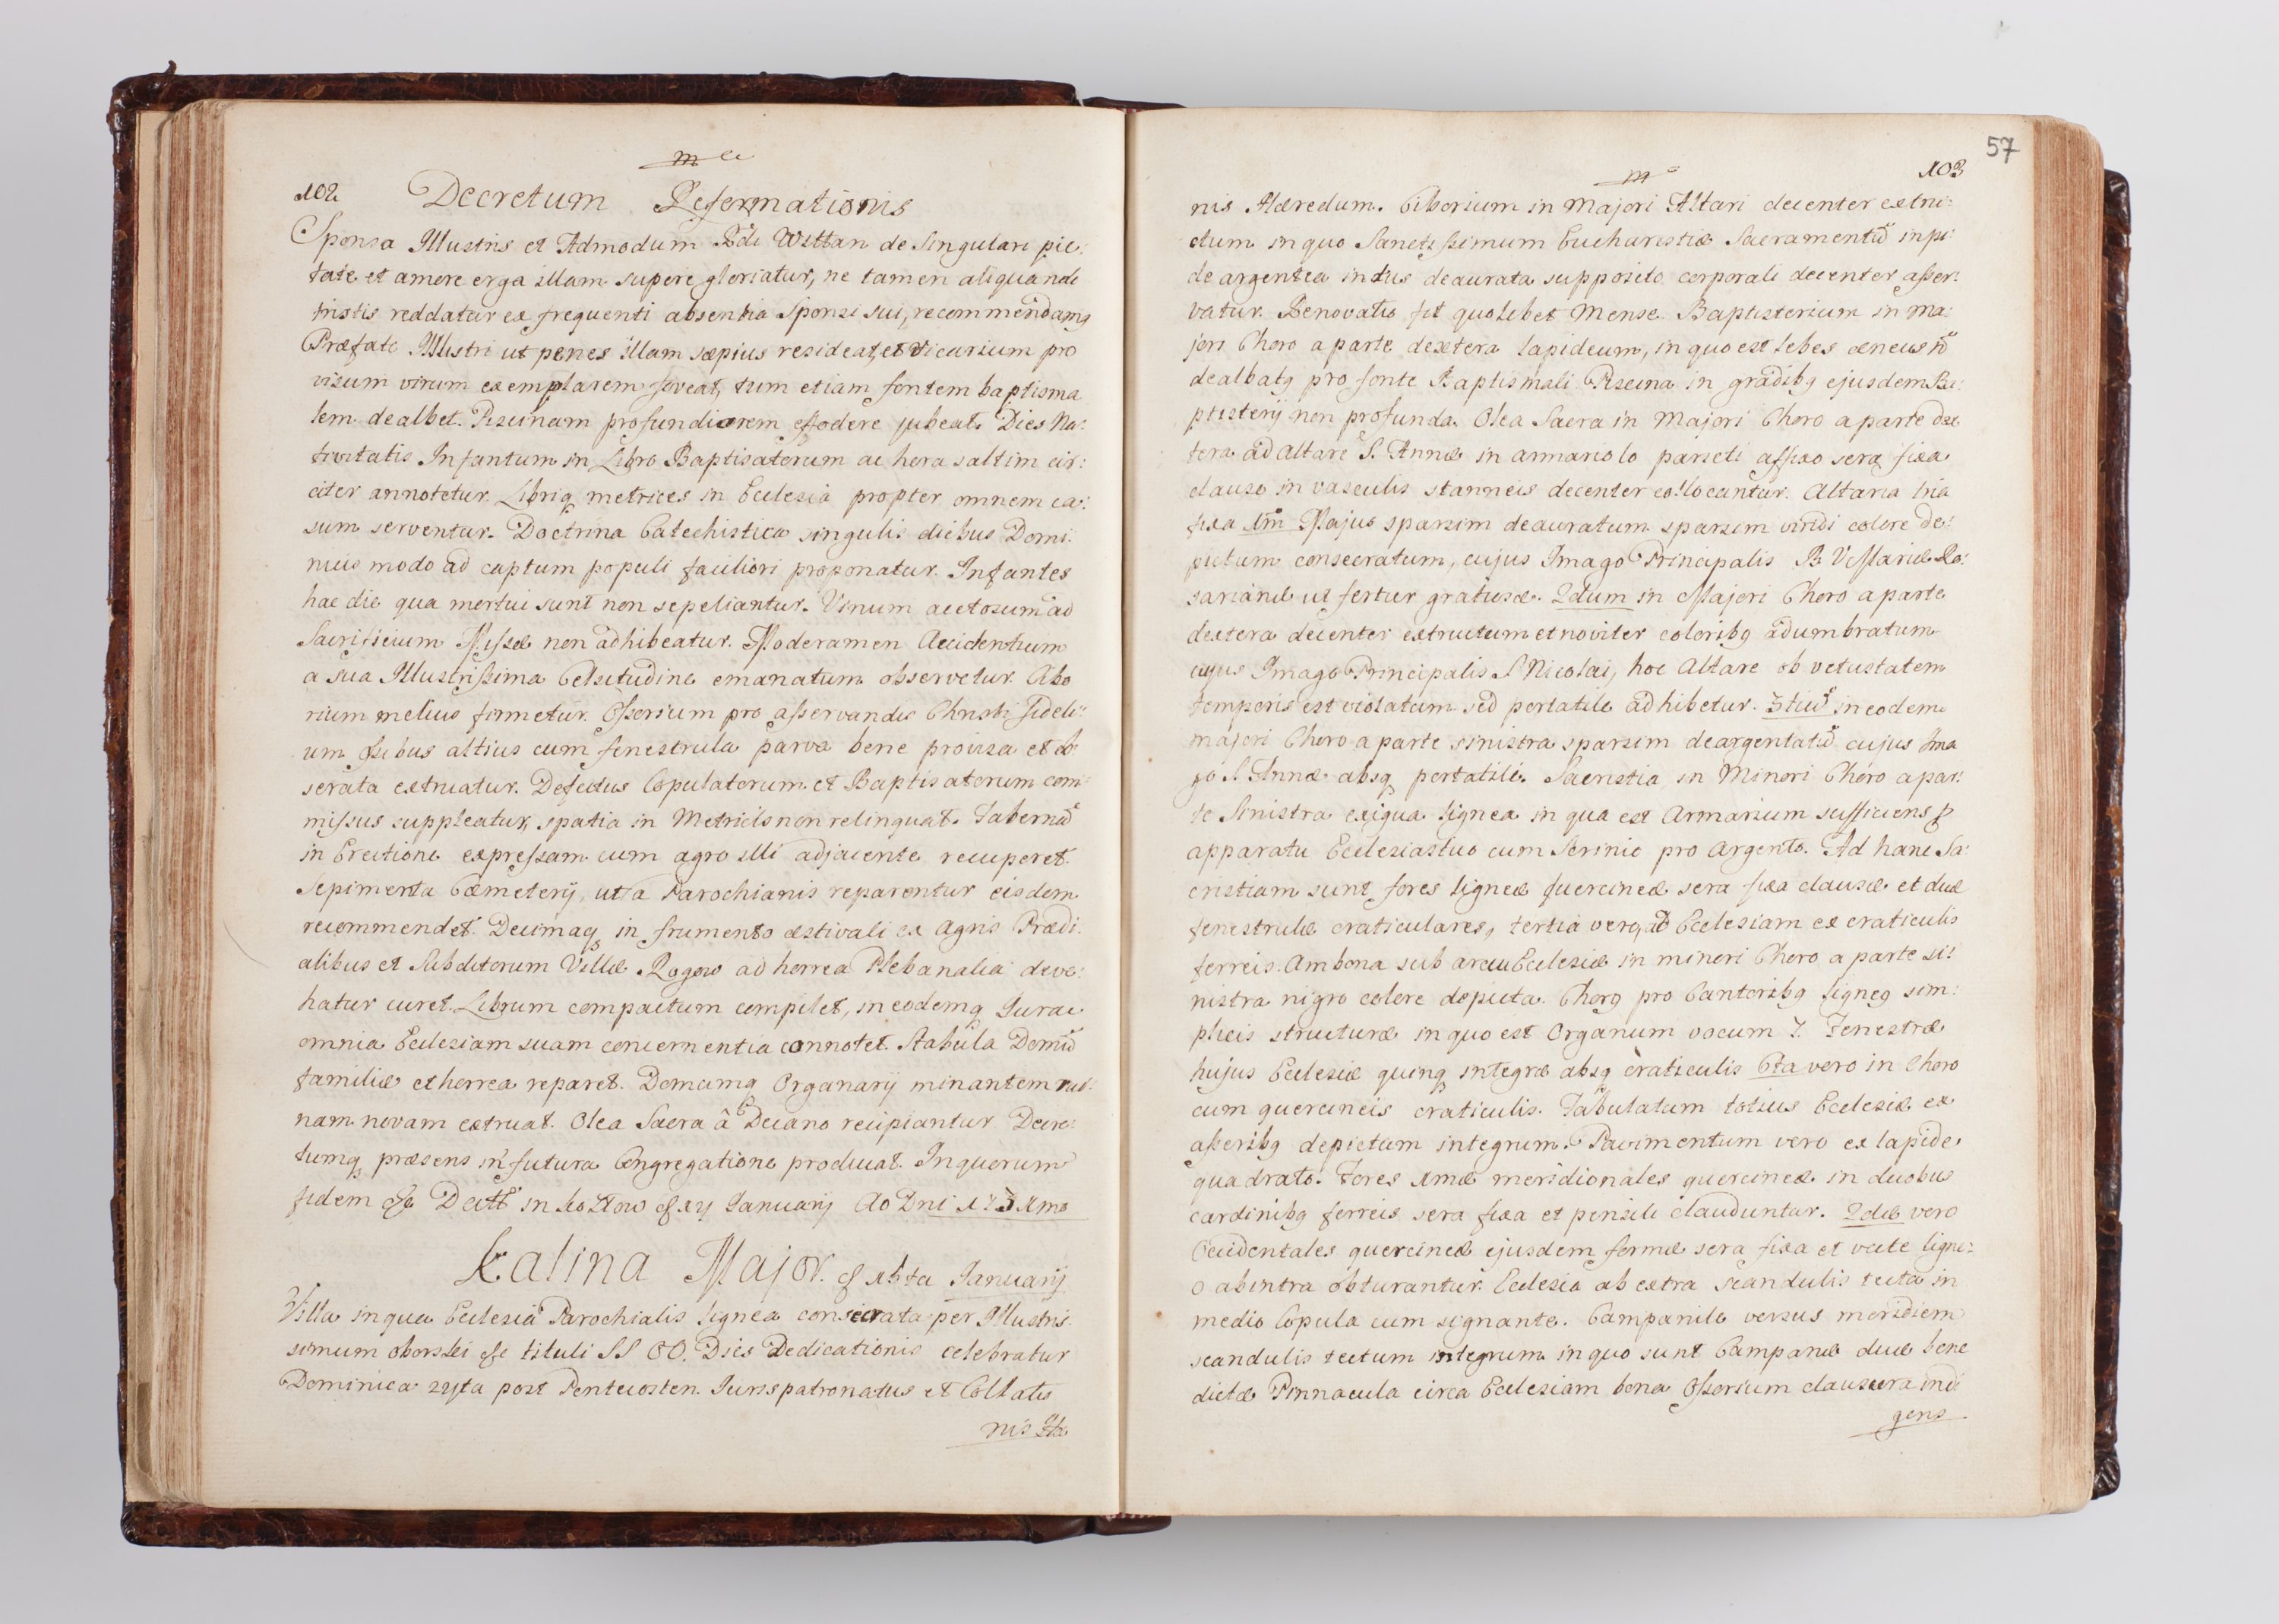 102 Decretum Reformationis
Sponsa Illustris et Admodum Rdi Wettan de singulari pie:
tate et amore erga illam supere gloriatur, ne tamen aliquando
tristis reddatur ex frequenti absentia Sponsi sui, recommendamq
Præfato Illustri ut penes illam sæpius resideat, et Vicarium pro
visum virum exemplarem foveat, tum etiam fontem baptisma
lem dealbet. Piscinam profundiorem effodere jubeat. Dies Na:
tivitatis Infantum in Libro Baptisatorum ac hora saltim cir:
citer annotetur. Libriq metrices in Ecclesia propter omnem ca:
sum serventur. Doctrina Catechistica singulis diebus Domi:
nicis modo ad captum populi faciliori proponatur. Infantes
hac die qua mortui sunt non sepeliantur. Vinum acetosum ad
Sacrificium Missæ non adhibeatur. Moderamen Accidentium
a sua Illustrissima Celsitudine emanatum observetur. Cibo
rium melius firmetur. Ossorium pro asservandis Christi fideli:
um ossibus altius cum fenestrula parva bene provisa et ob:
serata extruatur. Defectus Copulatorum et Baptisatorum com:
missus suppleatur, spatia in Metricis non relinquat. Tabernã
in Erectione expressam cum agro illi adjacente recuperet.
Sepimenta Cæmeterij, ut a Parochianis reparentur eisdem
recommendet. Decimaq in frumento æstivali ex Agris Prædi:
alibus et Subditorum Villæ Rogow ad horrea Plebanalia deve:
hatur curet. Librum compactum compilet, in eodemq Jura ac
omnia Ecclesiam suam concernentia connotet. Stabula Domũ
familiæ et horrea reparet. Domumq Organarij minantem rui:
nam novam extruat. Olea Sacra â Decano recipiantur Decre:
tumq præsens in futura Congregatione producat. In quorum
fidem Datt in Ao Dni 173 1mo
Kalina Major. Januarij
Villa in qua Ecclesia Parochialis lignea consecrata per Illustris
simum Oborski tituli SS OO. Dies Dedicationis celebratur
Dominica post Pentecosten. Juris patronatus et Collatio
nis Hæ
57
103
nis Hæredum. Ciborium in Majori Altari decenter extru:
ctum in quo Sanctissimum Eucharistiæ Sacramentũ in pi:
de argentea intus deaurata supposito corporali decenter asser:
vatur. Renovatio fit quolibet Mense. Baptisterium in Ma:
jori Choro a parte dextera lapideum, in quo est lebes æneus nõ
dealbatq pro fonte Baptismali Piscina in gradibq ejusdem Ba:
ptisterij non profunda. Olea Sacra in Majori Choro a parte dex
tera ad Altare S. Annæ in armariolo parieti affixo sera fixa
clauso in vasculis stanneis decenter collocantur. Altaria tria
fixa 1m̃ Majus sparsim deauratum sparsim viridi colore de:
pictum consecratum, cujus Imago Principalis B V Mariæ Ro:
sarianæ ut fertur gratiosæ. 2dum in Majori Choro a parte
dextera decenter extructum et noviter coloribq adumbratum
cujus Imago Principalis S Nicolai, hoc Altare ob vetustatem
temporis est violatum sed portatile adhibetur. 3tiũ in eodem
majori Choro a parte sinistra sparsim deargentatũ cujus Ima
go S Annæ absq portatili. Sacristia in Minori Choro a par:
te Sinistra exigua lignea in qua est Armarium sufficiens p
apparatu Ecclesiastico cum Scrinio pro Argento. Ad hanc Sa:
cristiam sunt fores ligneæ quercineæ sera fixa clausæ et duæ
fenestrulæ craticulares, tertia vero, ad Ecclesiam ex craticulis
ferreis. Ambona sub arcu Ecclesiæ in minori Choro a parte si:
nistra nigro colore depicta. Chorq pro Cantoribq ligneq sim:
plicis structuræ in quo est Organum vocum 7. Fenestræ
hujus Ecclesiæ quinq integræ absq craticulis 6ta vero in Choro
cum quercineis craticulis. Tabulatum totius Ecclesiæ ex
asseribq depictum integrum. Pavimentum vero ex lapide
quadrato. Fores 1mæ meridionales quercineæ in duobus
cardinibq ferreis sera fixa et pensili clauduntur. 2dæ vero
Occidentales quercineæ ejusdem formæ sera fixa et vecte ligne:
o abintra obturantur. Ecclesia ab extra scandulis tecta in
medio Copula cum signante. Campanile versus meridiem
scandulis tectum integrum in quo sunt Campanæ duæ bene
dictæ Pinnacula circa Ecclesiam bona Ossorium clausura indi
gens